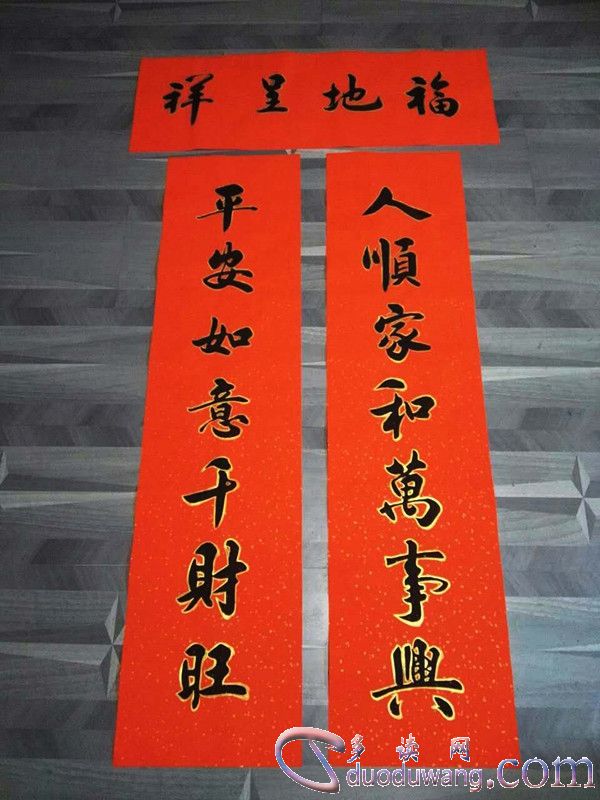 福地呈祥
人順家和萬事興
平安如意千財旺
多读网
duoduwang.com